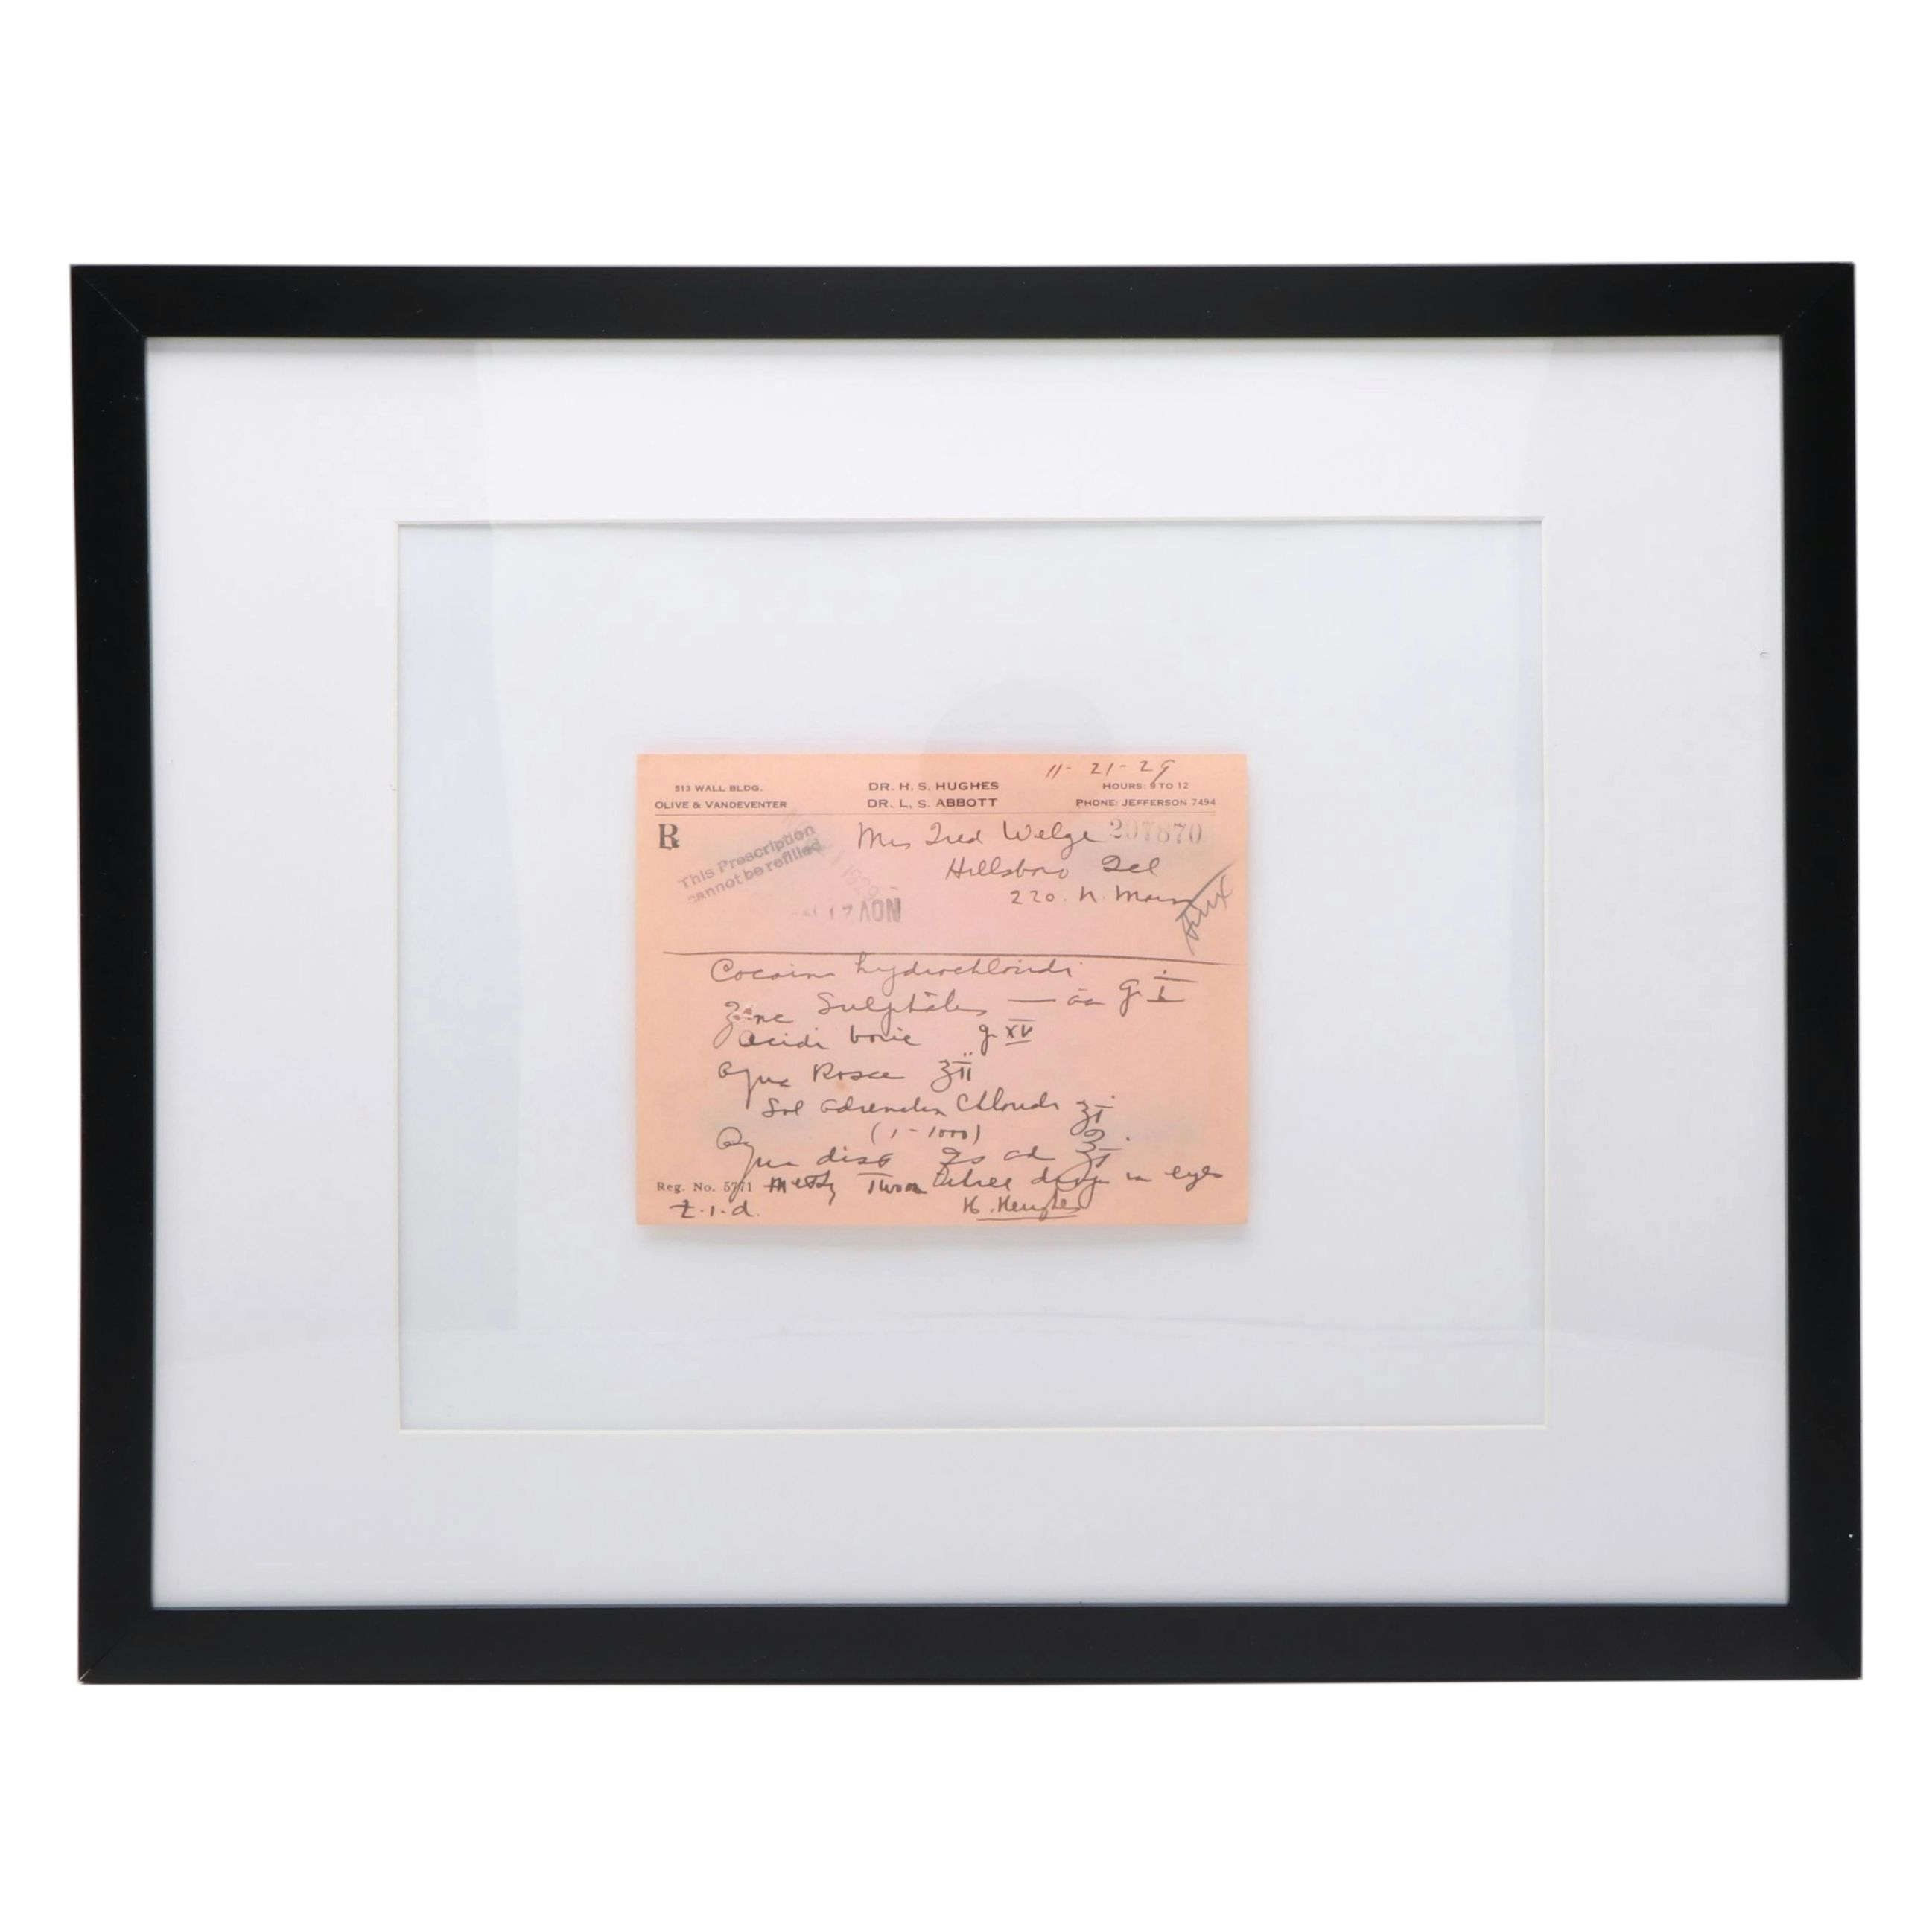 11-21-29
513 WALL BLDG.
OLIVE & VANDEVENTER
DR. H. S. HUGHES
DR. L. S. ABBOTT
HOURS: 9 TO 12
PHONE: JEFFERSON 7494
℞
This Prescription
cannot be refilled
Mrs Fred Welge 207870
Hillsboro Ill
220. N. Main
NOV 21 1929
Cocain hydrochloridi
Zinc Sulphatis — āā gr i
Acidi boric gr XV
Aqua Rosae ʒii
Sol adrenalin Chloridi ʒi
(1-1000)
Aqua dist qs ad ℥i
Reg. No. 5771 three drops in eyes
t.i.d. H. Hughes